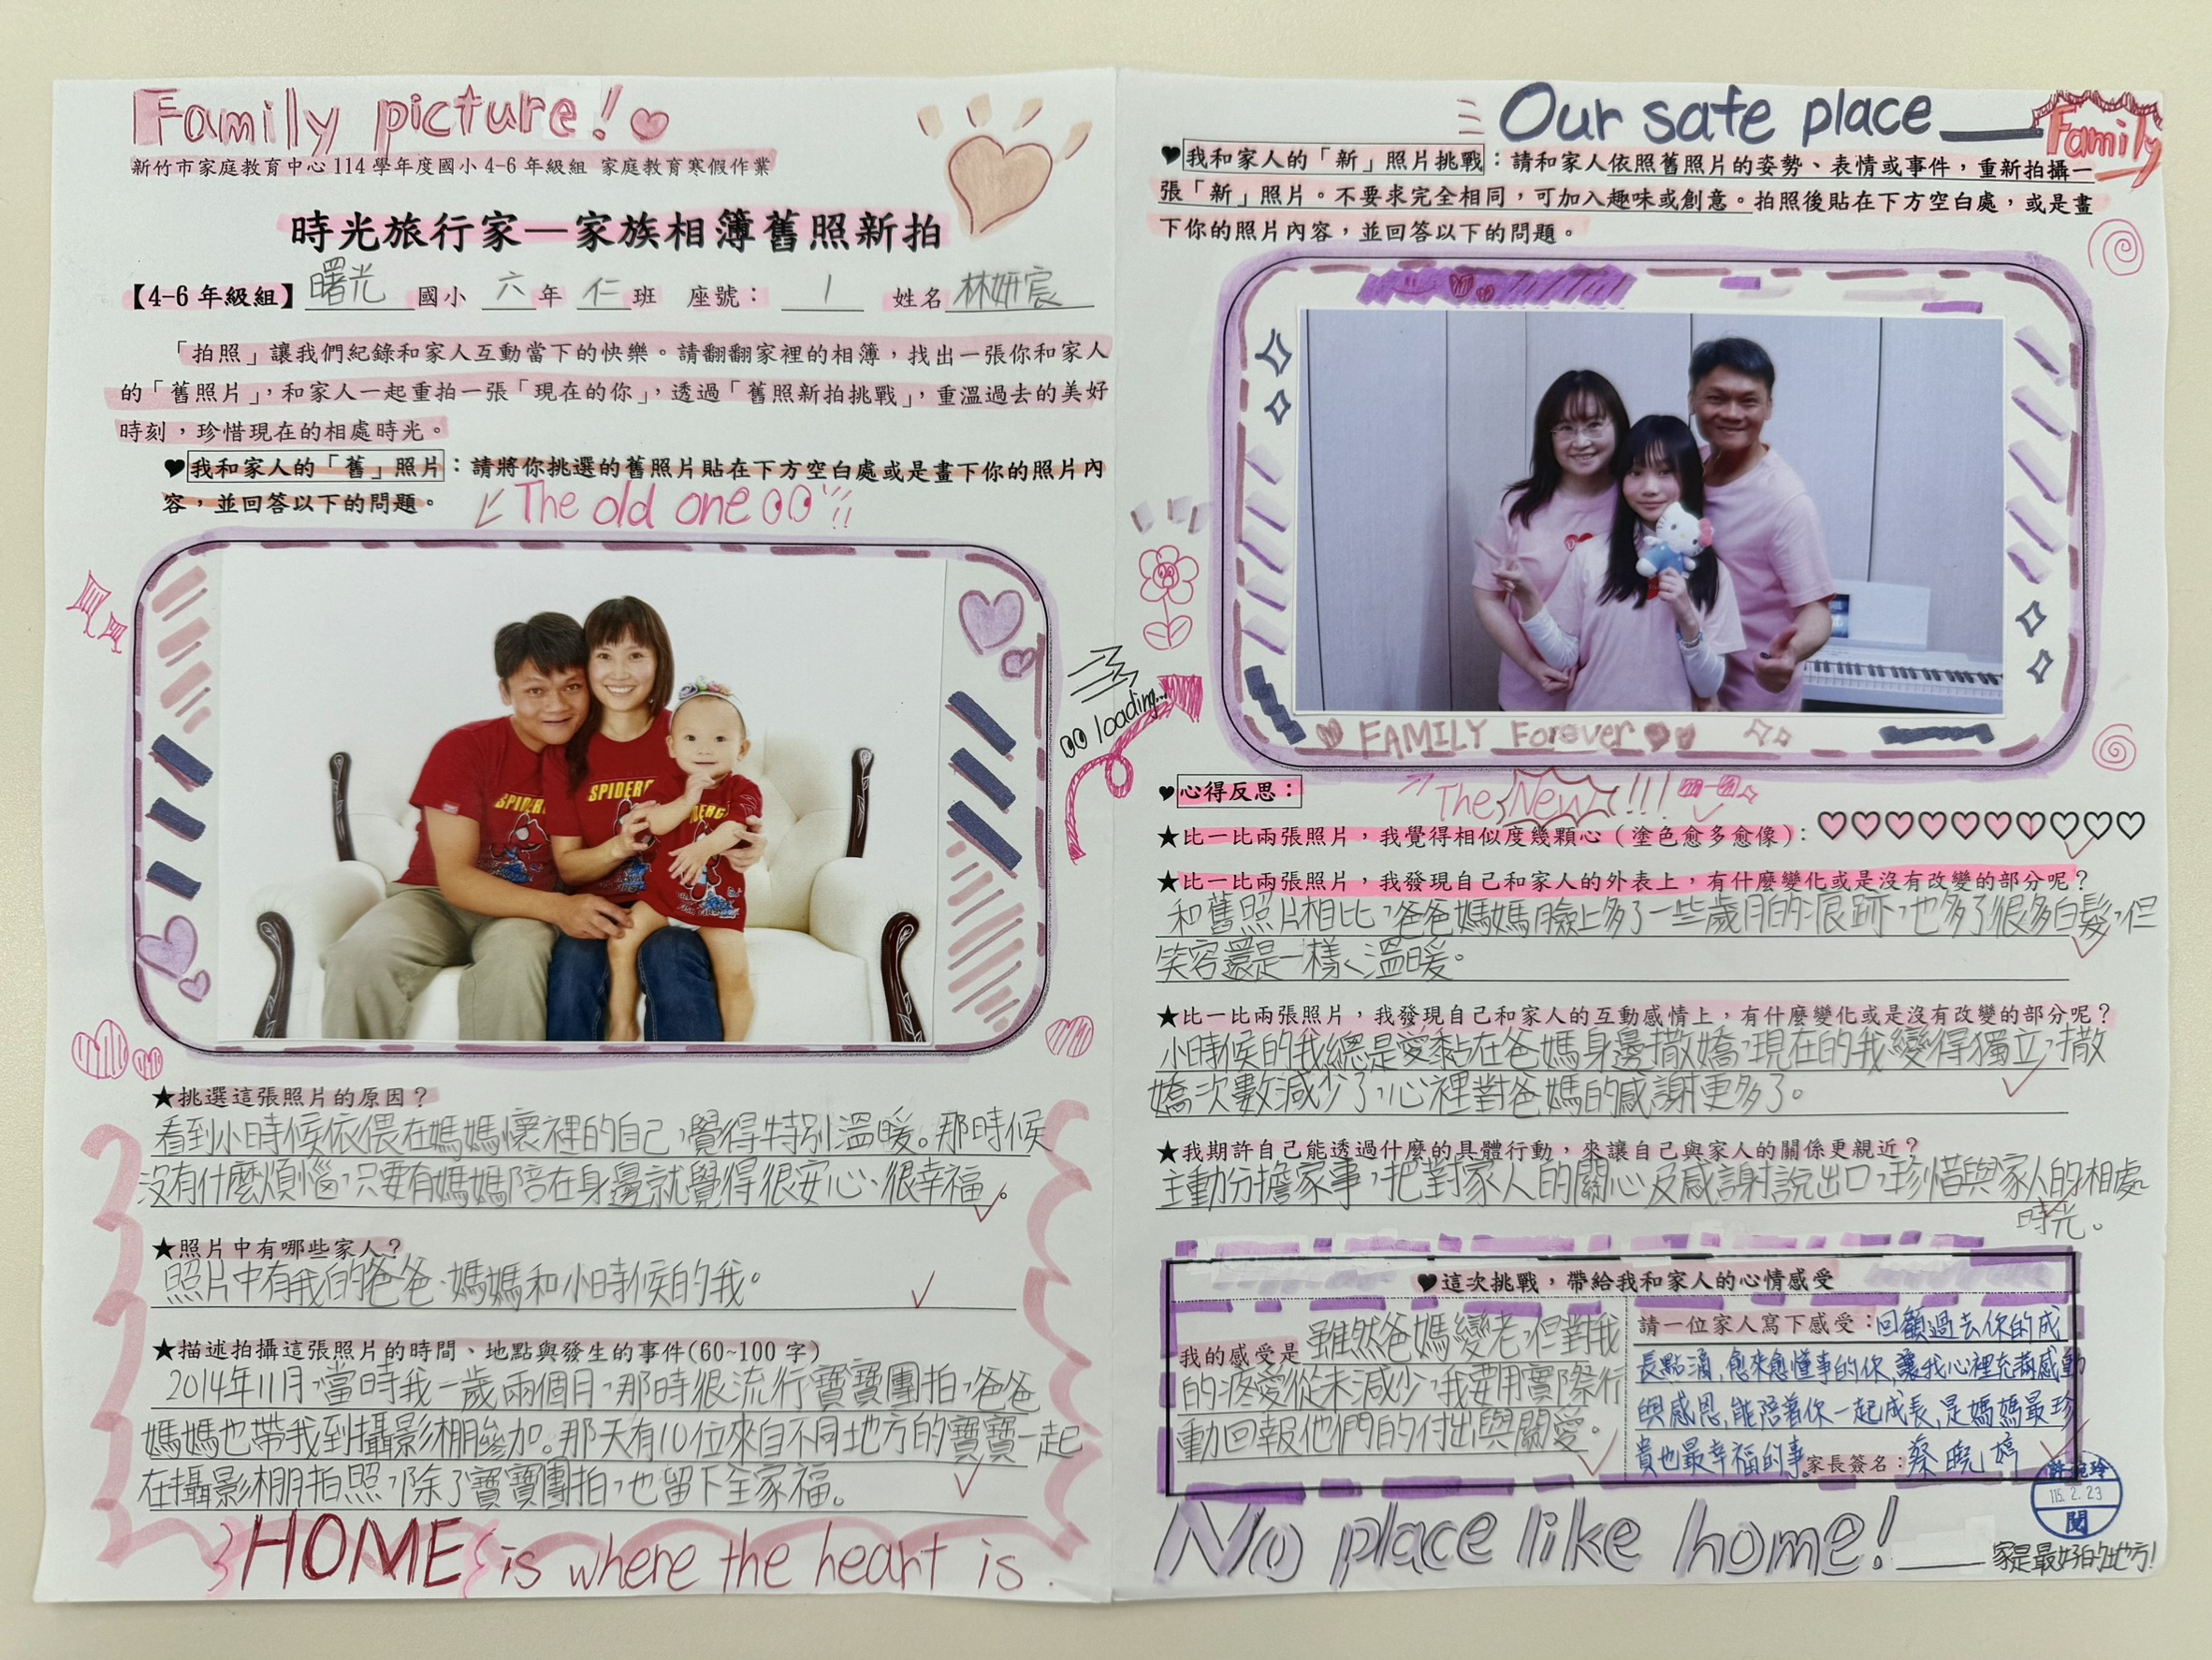 Family picture!
新竹市家庭教育中心 114 學年度國小 4-6 年級組 家庭教育寒假作業
時光旅行家—家族相簿舊照新拍
【4-6 年級組】 曙光 國小 六 年 仁 班 座號： 1 姓名 林妍宸
「拍照」讓我們紀錄和家人互動當下的快樂。請翻翻家裡的相簿，找出一張你和家人
的「舊照片」，和家人一起重拍一張「現在的你」，透過「舊照新拍挑戰」，重溫過去的美好
時刻，珍惜現在的相處時光。
♥我和家人的「舊」照片：請將你挑選的舊照片貼在下方空白處或是畫下你的照片內
容，並回答以下的問題。
The old one !!
SPIDER
SPIDER
IDERC
★挑選這張照片的原因？
看到小時候依偎在媽媽懷裡的自己，覺得特別溫暖。那時候
沒有什麼煩惱，只要有媽媽陪在身邊就覺得很安心、很幸福。
★照片中有哪些家人？
照片中有我的爸爸、媽媽和小時候的我。
★描述拍攝這張照片的時間、地點與發生的事件(60~100 字)
2014年11月，當時我一歲兩個月，那時很流行寶寶團拍，爸爸
媽媽也帶我到攝影棚參加。那天有10位來自不同地方的寶寶一起
在攝影棚拍照，除了寶寶團拍，也留下全家福。
HOME is where the heart is.
loading...
Our safe place
Family
♥我和家人的「新」照片挑戰：請和家人依照舊照片的姿勢、表情或事件，重新拍攝一
張「新」照片。不要求完全相同，可加入趣味或創意。拍照後貼在下方空白處，或是畫
下你的照片內容，並回答以下的問題。
FAMILY Forever
The New!!!
♥心得反思：
★比一比兩張照片，我覺得相似度幾顆心（塗色愈多愈像）：♡♡♡♡♡♡♡♡♡♡
★比一比兩張照片，我發現自己和家人的外表上，有什麼變化或是沒有改變的部分呢？
和舊照片相比，爸爸媽媽臉上多了一些歲月的痕跡，也多了很多白髮，但
笑容還是一樣溫暖。
★比一比兩張照片，我發現自己和家人的互動感情上，有什麼變化或是沒有改變的部分呢？
小時候的我總是愛黏在爸媽身邊撒嬌，現在的我變得獨立，撒
嬌次數減少了，心裡對爸媽的感謝更多了。
★我期許自己能透過什麼的具體行動，來讓自己與家人的關係更親近？
主動分擔家事，把對家人的關心及感謝說出口，珍惜與家人的相處
時光。
♥這次挑戰，帶給我和家人的心情感受
我的感受是 雖然爸媽變老，但對我
的疼愛從未減少，我要用實際行
動回報他們的付出與關愛。
請一位家人寫下感受：回顧過去你的成
長點滴，愈來愈懂事的你，讓我心裡充滿感動
與感恩，能陪著你一起成長，是媽媽最珍
貴也最幸福的事。家長簽名：蔡曉婷
115. 2. 23
閱
No place like home!
家是最好的地方！